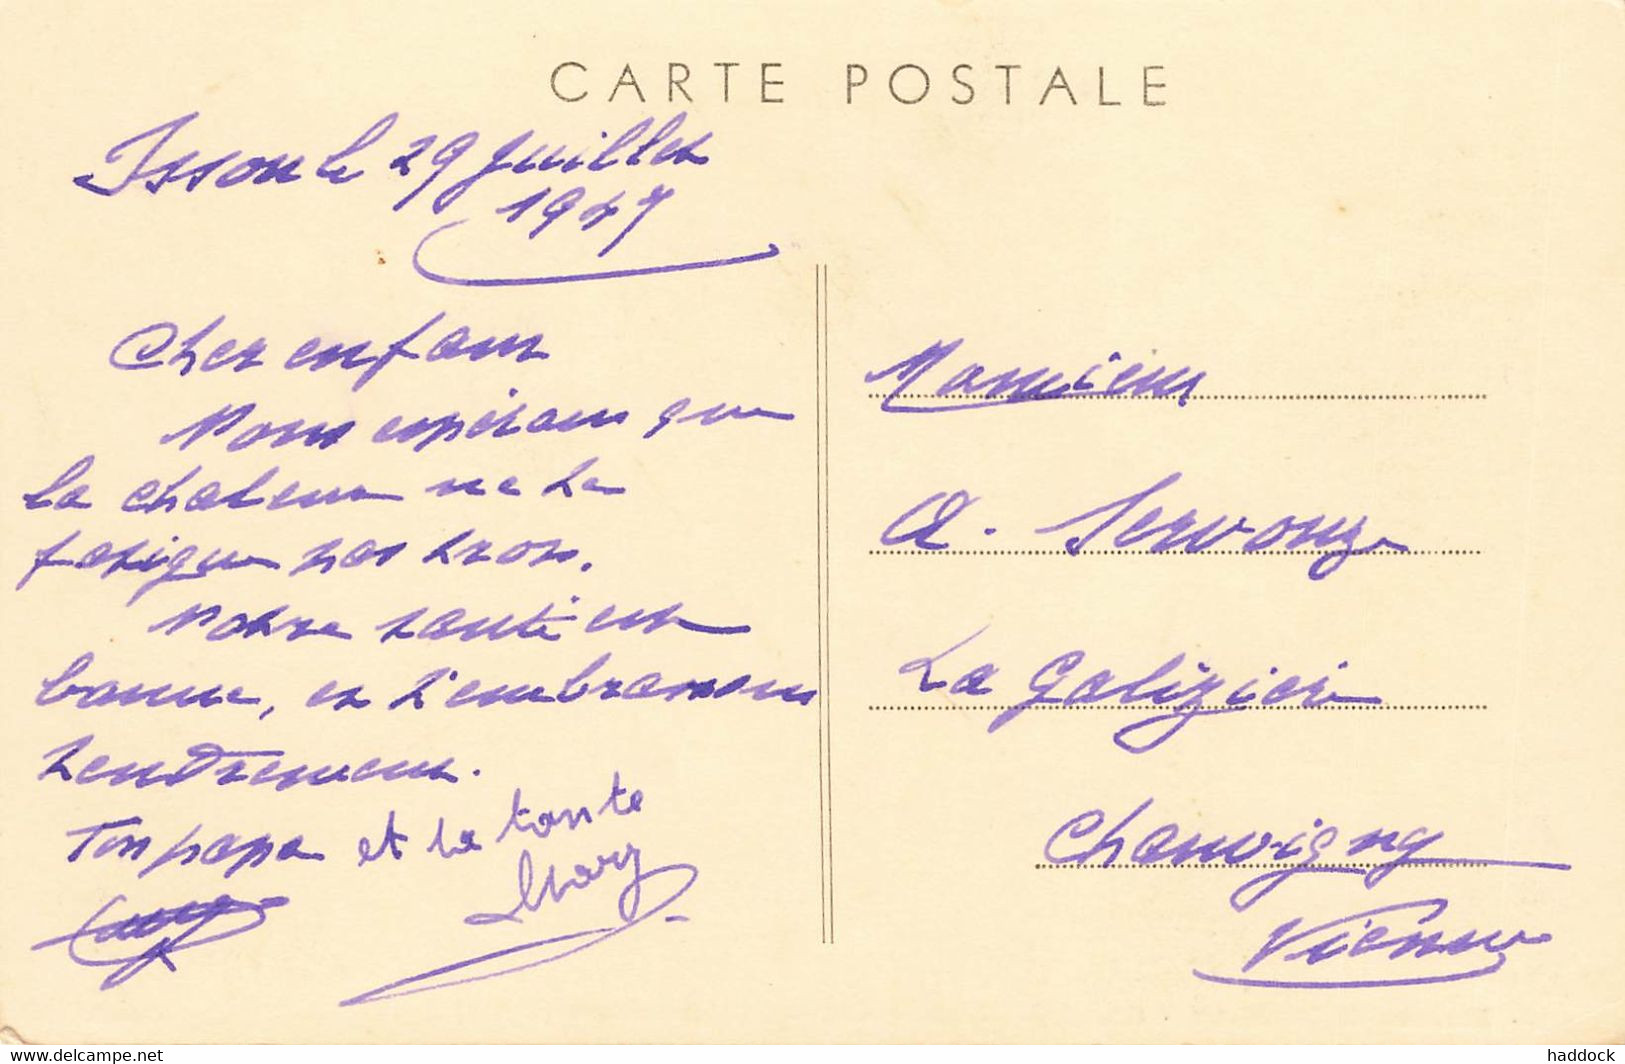 CARTE POSTALE
Isson le 29 juillet
1947
Cher enfant
Nous espérons que
la chaleur ne te
fatigue pas trop.
Notre santé est
bonne, et t'embrassons
tendrement.
Ton papa et ta tante
Mary
Monsieur
A. Servouze
La Galizière
Chauvigny
Vienne
www.delcampe.net
haddock